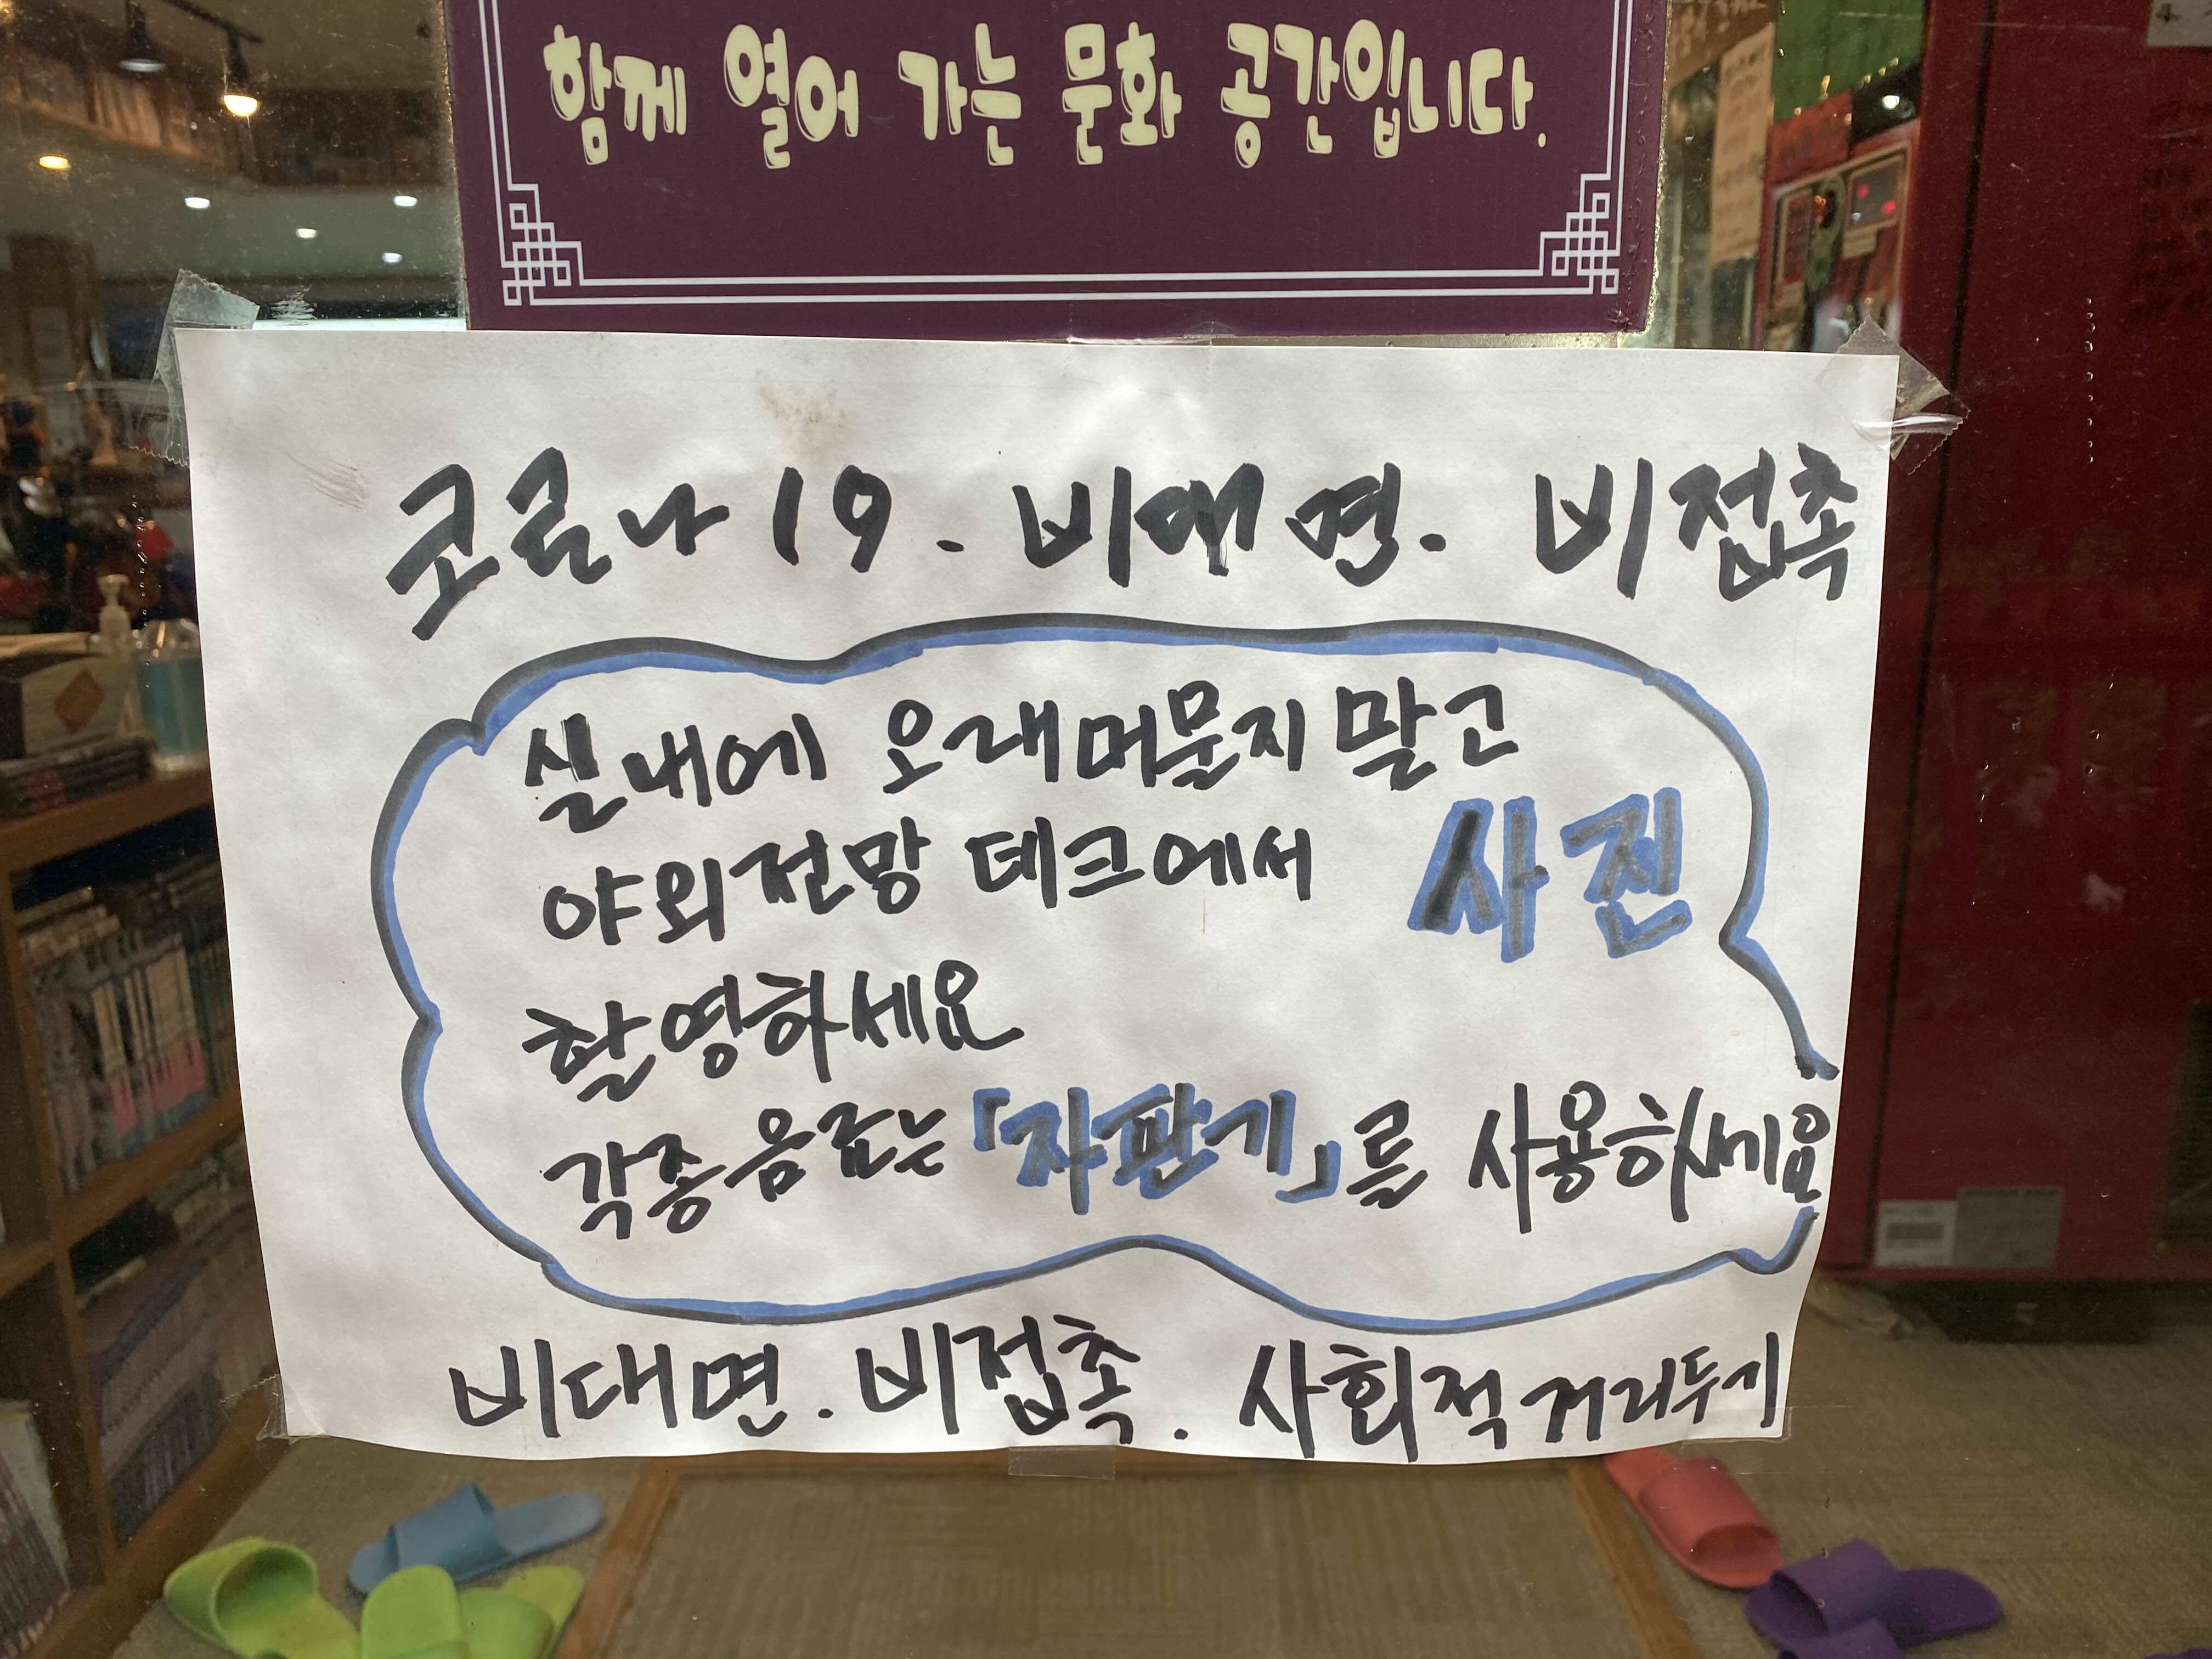 함께 열어 가는 문화 공간입니다.
코로나19. 비대면. 비접촉
실내에 오래 머물지 말고
야외전망 데크에서 사진
촬영하세요
각종음료는 「자판기」를 사용하세요
비대면. 비접촉. 사회적 거리두기